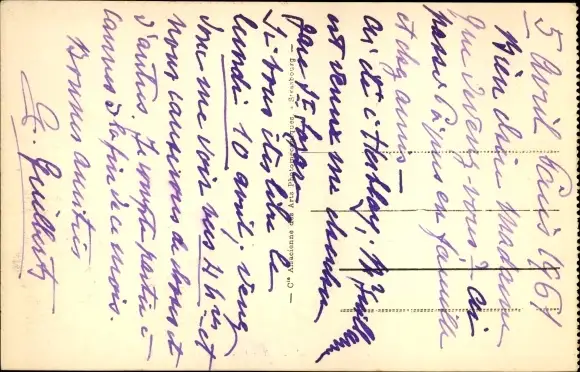 5 Avril Paris 1961
Bien chère Madame
Que devenez-vous? ai
passé Pâques en famille
et chez amis —
ai été à Herblay, Mr
est venu me chercher
Gare St Lazare
Si vous êtes libre le
lundi 10 avril, venez
donc me voir vers 4h et
nous causerons de bons et
d'autres. Je compte partir à
Cannes à la fin de ce mois.
Bonnes amitiés
G. Guilbert
— Cie Alsacienne des Arts Photomécaniques, - Strasbourg —